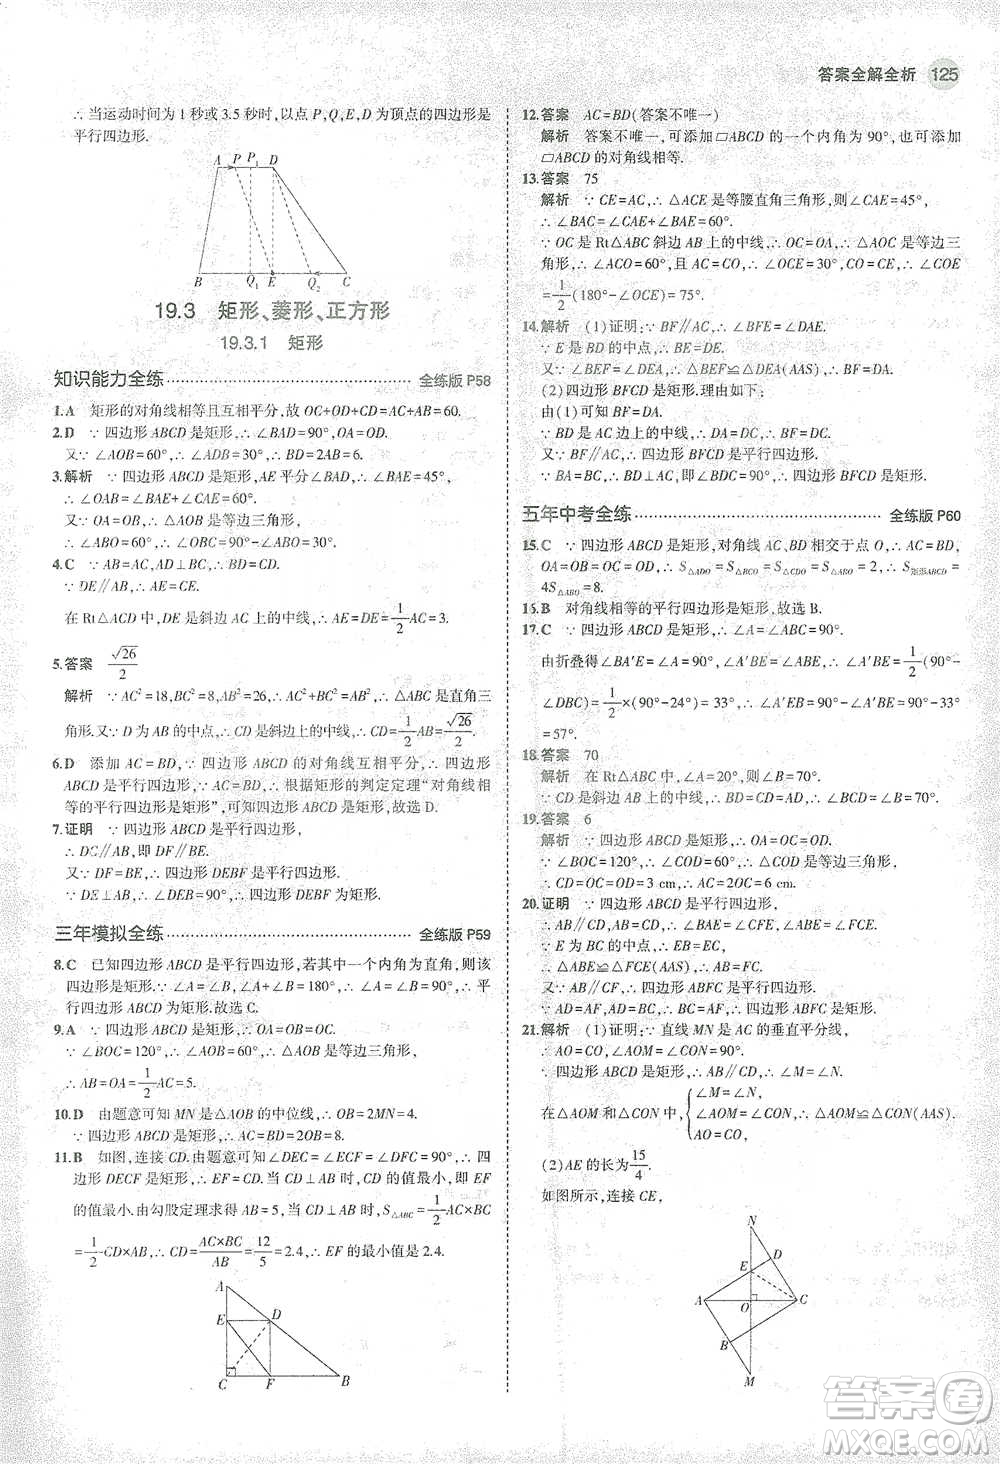 答案全解全析 125
∴ 当运动时间为 1 秒或 3.5 秒时,以点 P,Q,E,D 为顶点的四边形是
平行四边形.
A P P₁ D
B Q₁ E Q₂ C
19.3 矩形、菱形、正方形
19.3.1 矩形
知识能力全练 全练版 P58
1.A 矩形的对角线相等且互相平分,故 OC+OD+CD=AC+AB=60.
2.D ∵ 四边形 ABCD 是矩形,∴ ∠BAD=90°,OA=OD.
又∵ ∠AOB=60°,∴ ∠ADB=30°,∴ BD=2AB=6.
3.解析 ∵ 四边形 ABCD 是矩形,AE 平分∠BAD,∴ ∠BAE=45°,
∴ ∠OAB=∠BAE+∠CAE=60°.
又∵ OA=OB,∴ △AOB 是等边三角形,
∴ ∠ABO=60°,∴ ∠OBC=90°-∠ABO=30°.
4.C ∵ AB=AC,AD=BD,∴ AD⊥BC,∴ ∠BAC=∠C.
∵ DE∥AB,
在 Rt△ACD 中,DE 是斜边 AC 上的中线,∴ DE=1/2AC=3.
5.答案 √26/2
解析 ∵ AC²=18,BC²=8,AB²=26,∴ AC²+BC²=AB²,∴ △ABC 是直角三
角形.又∵ D 为 AB 的中点,∴ CD 是斜边上的中线,∴ CD=1/2AB=√26/2.
6.D 添加 AC=BD,∵ 四边形 ABCD 的对角线互相平分,∴ 四边形
ABCD 是平行四边形.∵ AC=BD,∴ 根据矩形的判定定理“对角线相
等的平行四边形是矩形”,可知四边形 ABCD 是矩形,故选 D.
7.证明 ∵ 四边形 ABCD 是平行四边形,
∴ DC∥AB,即 DF∥BE.
又∵ DF=BE,∴ 四边形 DEBF 是平行四边形.
又∵ DE⊥AB,∴ ∠DEB=90°,∴ 四边形 DEBF 为矩形.
三年模拟全练 全练版 P59
8.C 已知四边形 ABCD 是平行四边形,若其中一个内角为直角,则该
四边形是矩形.∵ ∠A=∠B,∠A+∠B=180°,∴ ∠A=∠B=90°,∴ 平
行四边形 ABCD 为矩形.故选 C.
9.A ∵ 四边形 ABCD 是矩形,∴ OA=OB=OD=OC.
∵ ∠BOC=120°,∴ ∠AOB=60°,∴ △AOB 是等边三角形,
∴ AB=OA=1/2AC=5.
10.D 由题意可知 MN 是△AOB 的中位线,∴ OB=2MN=4.
∵ 四边形 ABCD 为矩形,∴ BD=2OB=8.
11.B 如图,连接 CD.由题意可知∠DEC=∠ECF=∠CFD=90°,∴ 四
边形 DECF 是矩形,∴ EF=CD.当 CD⊥AB 时,CD 的值最小,即 EF
的值最小.由勾股定理得 AB=5,当 CD⊥AB 时,S△ABC=1/2AC×BC
=1/2CD×AB,∴ CD=AC×BC/AB=12/5=2.4,∴ EF 的最小值是 2.4.
A
E D
C F B
12.答案 AC=BD(答案不唯一)
解析 答案不唯一,可添加▱ABCD 的一个内角为 90°,或添加
▱ABCD 的对角线相等.
13.答案 75
解析 ∵ CE=AC,∴ △ACE 是等腰直角三角形,则∠CAE=45°,
∴ ∠BAC=∠CAE+∠BAE=60°.
∵ OC 是 Rt△ABC 斜边 AB 上的中线,∴ OC=OA,∴ △AOC 是等边三
角形,∴ ∠ACO=60°,∴ ∠OCE=30°,且 AC=CO,∴ CO=CE,∴ ∠COE
=1/2(180°-∠OCE)=75°.
14.解析 (1)证明:∵ BF∥AC,∴ ∠BFE=∠DAE.
∵ E 是 BD 的中点,∴ BE=DE,
又∵ ∠BEF=∠DEA,∴ △BEF≌△DEA,∴ BF=DA.
(2)四边形 BFCD 是矩形.理由如下:
由(1)可知 BF=DA.
∵ D 是 AC 边上一点,AD=DC,∴ DC=BF,
又∵ BF∥AC,∴ 四边形 BFCD 是平行四边形.
∵ BA=BC,∴ BD⊥AC,即∠BDC=90°,∴ 四边形 BFCD 是矩形.
五年中考全练 全练版 P60
15.C ∵ 四边形 ABCD 是矩形,对角线 AC,BD 相交于点 O,∴ AC=BD,
OA=OB=OC=OD,∴ S△ADO=S△BCO=S△CDO=S△ABO=2,∴ S矩形ABCD=
4S△ABO=8.
16.B 对角线相等的平行四边形是矩形,故选 B.
17.C ∵ 四边形 ABCD 是矩形,∴ ∠A=∠ABC=90°.
由折叠得∠BA′E=∠A=90°,∠A′BE=∠ABE=1/2(90°-
∠DBC)=1/2×(90°-24°)=33°,∴ ∠A′EB=90°-∠A′BE=90°-33°
=57°.
18.答案 70
解析 在 Rt△ABC 中,∵ ∠A=20°,∴ ∠B=90°-∠A=70°.
∵ CD 是斜边 AB 上的中线,∴ CD=BD,∴ ∠BCD=∠B=70°.
19.答案 6
解析 ∵ 四边形 ABCD 是矩形,∴ OA=OC=OD.
∵ ∠BOC=120°,∴ ∠COD=60°,∴ △COD 为等边三角形,
∴ OA=OC=OD=CD=3 cm,∴ AC=6 cm.
20.证明 ∵ 四边形 ABCD 是平行四边形,
∴ AB∥CD,AB=CD,∴ ∠BAE=∠CFE,∠ABE=∠FCE.
∵ E 为 BC 的中点,∴ EB=EC,
∴ △ABE≌△FCE(AAS),∴ AB=CF.
∵ AB∥CF,∴ 四边形 ABFC 是平行四边形.
∵ AD=AF,AD=BC,∴ BC=AF,∴ 四边形 ABFC 是矩形.
21.解析 (1)证明:∵ 直线 MN 是 AC 的垂直平分线,
∴ AO=CO,
∵ 四边形 ABCD 是矩形,∴ AB∥CD,∴ ∠M=∠N.
在△AOM 和△CON 中,{∠M=∠N, ∠AOM=∠CON, AO=CO, ∴ △AOM≌△CON(AAS).
(2)AE 的长为15/4.
如图所示,连接 CE,
N
E D
A O C
B
M
答案圈
MXQE.COM